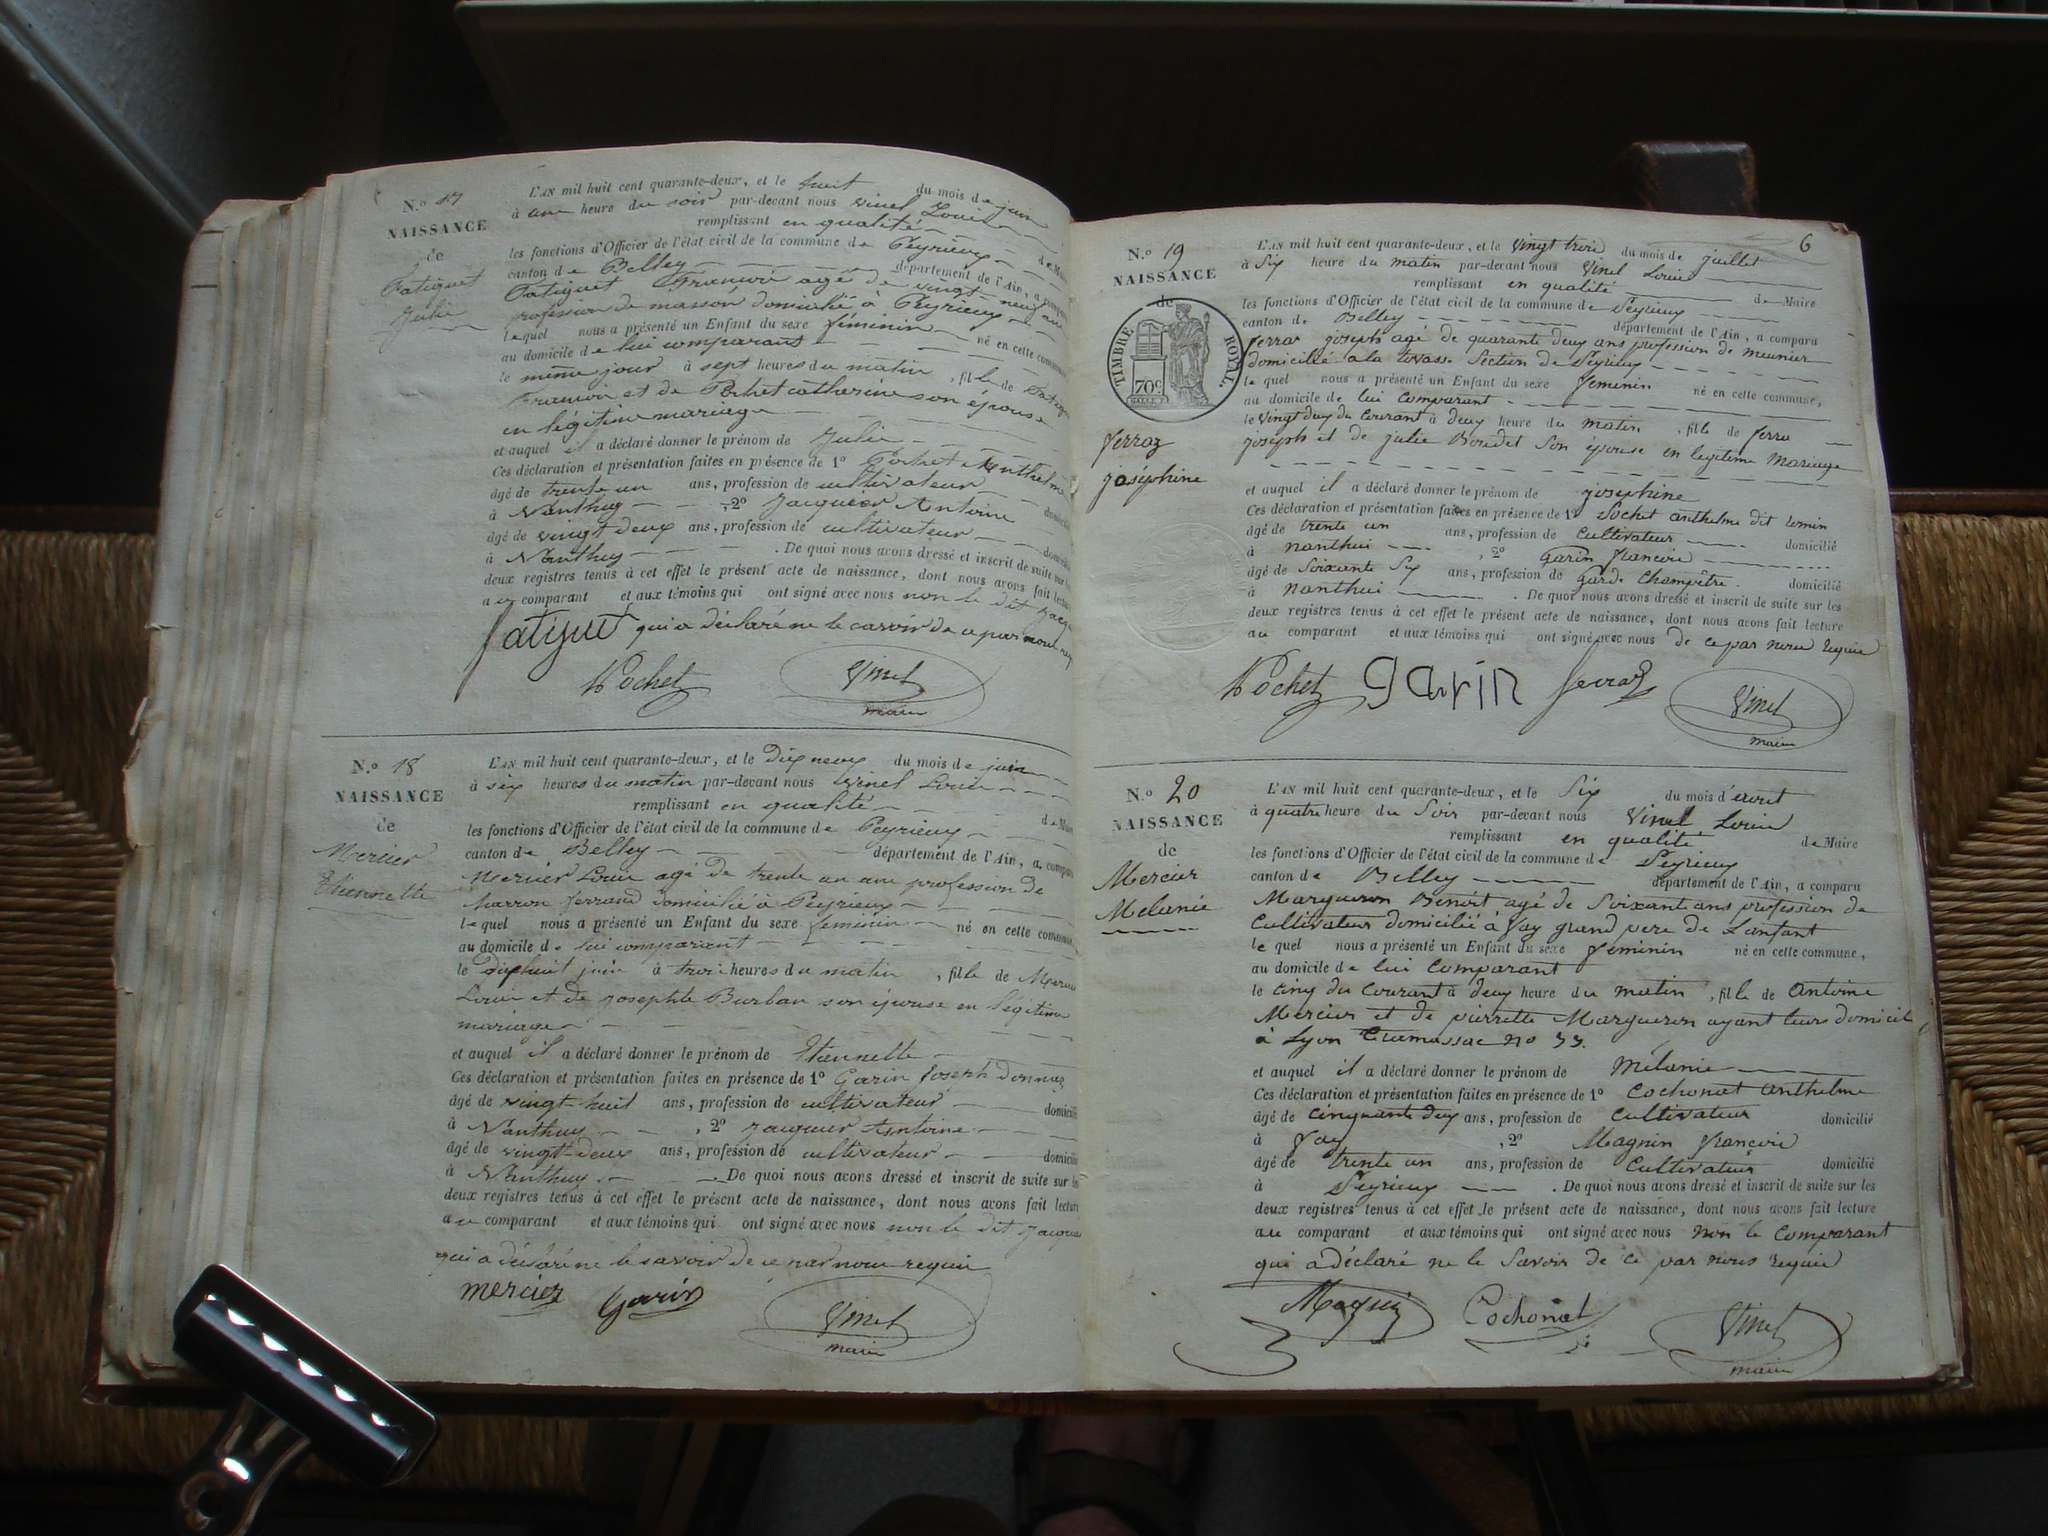 N.º 17
NAISSANCE
de
Fatiguet
Julie
L'AN mil huit cent quarante-deux, et le huit du mois de juin
à une heure du soir par-devant nous Vinel Louis
remplissant en qualité
de Maire
les fonctions d'Officier de l'état civil de la commune de Peyrieux
canton de Belley département de l'Ain, a comparu
Fatiguet François agé de vingt neuf ans
profession de masson domicilié à Peyrieux
lequel nous a présenté un Enfant du sexe féminin né en cette commune
au domicile de lui comparant
le même jour à sept heures du matin, fille de
François et de Pochet catherine son épouse
en légitime mariage
et auquel il a déclaré donner le prénom de Julie
Ces déclaration et présentation faites en présence de 1º Pochet Anthelme
âgé de trente un ans, profession de cultivateur
à Nanthuy, 2º Jacquier Antoine
âgé de vingt deux ans, profession de cultivateur
à Nanthuy. De quoi nous avons dressé et inscrit de suite sur les
deux registres tenus à cet effet le présent acte de naissance, dont nous avons fait lecture
au comparant et aux témoins qui ont signé avec nous non le dit
qui a déclaré ne le savoir de ce par nous
fatiguet
Pochet
Vinel
maire
N.º 18
NAISSANCE
de
Mercier
Etiennette
L'AN mil huit cent quarante-deux, et le Dix neuf du mois de juin
à six heures du matin par-devant nous Vinel Louis
remplissant en qualité
de Maire
les fonctions d'Officier de l'état civil de la commune de Peyrieux
canton de Belley département de l'Ain, a comparu
Mercier Louis agé de trente un ans profession de
domicilié à Peyrieux
lequel nous a présenté un Enfant du sexe feminin né en cette commune
au domicile de lui comparant
le dixhuit juin à trois heures du matin, fille de Mercier
Louis et de Josephte Burban son épouse en légitime
mariage
et auquel il a déclaré donner le prénom de Etiennette
Ces déclaration et présentation faites en présence de 1º Garin Joseph
âgé de vingt-huit ans, profession de cultivateur domicilié
à Nanthuy, 2º Jacquier Antoine
âgé de vingt-deux ans, profession de cultivateur domicilié
à Nanthuy. De quoi nous avons dressé et inscrit de suite sur les
deux registres tenus à cet effet le présent acte de naissance, dont nous avons fait lecture
au comparant et aux témoins qui ont signé avec nous non le dit
qui a déclaré ne le savoir de ce par nous requis
mercier Garin
Vinel
maire
6
N.º 19
NAISSANCE
de
TIMBRE ROYAL
70 c
ferraz
joséphine
L'AN mil huit cent quarante-deux, et le vingt trois du mois de juillet
à Six heure du matin par-devant nous Vinel Louis
remplissant en qualité de Maire
les fonctions d'Officier de l'état civil de la commune de Peyrieux
canton de Belley département de l'Ain, a comparu
ferraz joseph agé de quarante deux ans profession de meunier
domicilié a la Section de Peyrieux
lequel nous a présenté un Enfant du sexe feminin né en cette commune,
au domicile de lui comparant
le Vingt deux du courant à deux heure du matin, fille de
joseph et de julie Boudet Son épouse en legitime Mariage
et auquel il a déclaré donner le prénom de josephine
Ces déclaration et présentation faites en présence de 1º Pochet anthelme dit
âgé de trente un ans, profession de Cultivateur domicilié
à nanthui, 2º Garin françois
âgé de Soixante Six ans, profession de Garde Champêtre domicilié
à nanthui. De quoi nous avons dressé et inscrit de suite sur les
deux registres tenus à cet effet le présent acte de naissance, dont nous avons fait lecture
au comparant et aux témoins qui ont signé avec nous de ce par nous requis
Pochet garin ferraz
Vinel
maire
N.º 20
NAISSANCE
de
Mercier
Melanie
L'AN mil huit cent quarante-deux, et le Six du mois d'aout
à quatre heure du Soir par-devant nous Vinel Louis
remplissant en qualité de Maire
les fonctions d'Officier de l'état civil de la commune de Peyrieux
canton de Belley département de l'Ain, a comparu
Margueron Benoit agé de Soixante ans profession de
Cultivateur domicilié à fay grand pere de L'anfant
lequel nous a présenté un Enfant du sexe feminin né en cette commune,
au domicile de lui Comparant
le Cinq du Courant à deux heure du matin, fille de Antoine
Mercier et de pierrette Margueron ayant leurs domicil
à Lyon Tramassac no 33.
et auquel il a déclaré donner le prénom de Mélanie
Ces déclaration et présentation faites en présence de 1º Cochonat anthelme
âgé de cinquante deux ans, profession de Cultivateur domicilié
à fay, 2º Magnin françois
âgé de trente un ans, profession de Cultivateur domicilié
à Peyrieux. De quoi nous avons dressé et inscrit de suite sur les
deux registres tenus à cet effet le présent acte de naissance, dont nous avons fait lecture
au comparant et aux témoins qui ont signé avec nous non le Comparant
qui a déclaré ne le Savoir de ce par nous requis
Magnin Cochonat
Vinel
maire